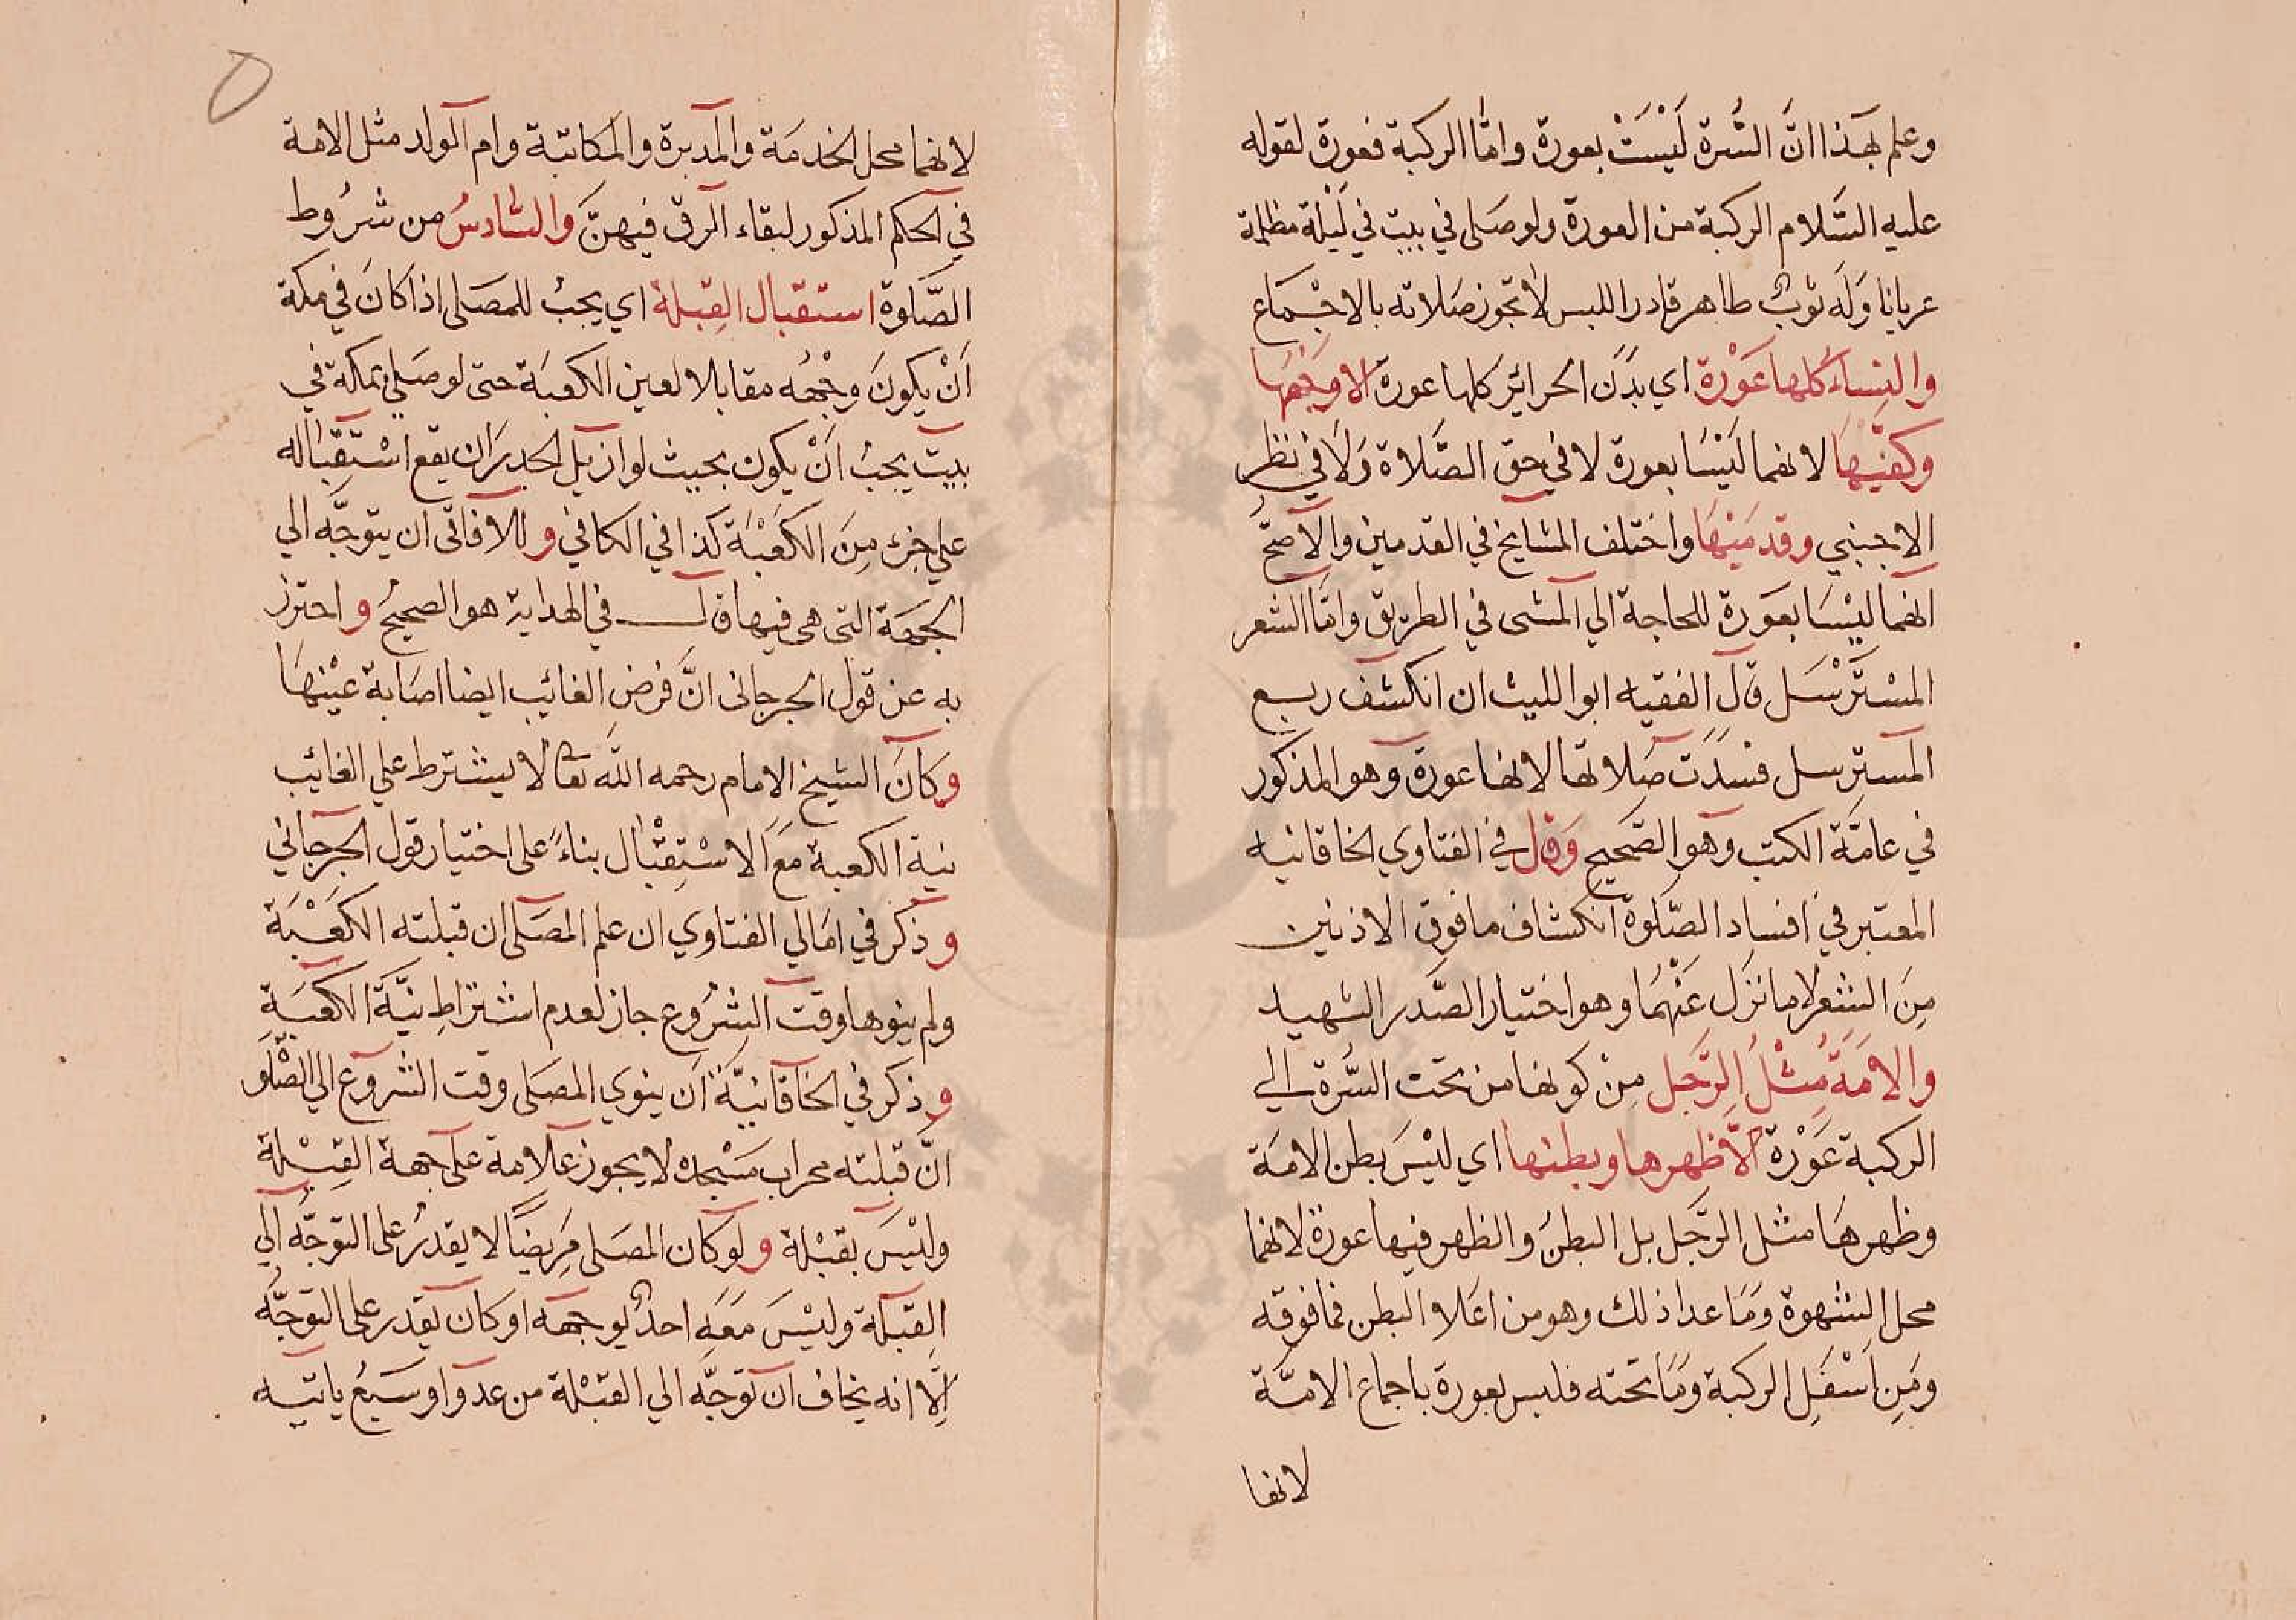 وعلم بهَذا انَّ السُّرة لَيْسَتْ بعورة وامّا الركبة فعورة لقوله
عليه السَّلام الركبة من العورة ولو صَلى في بيت في لَيْلة مظلمة
عريانا وَله ثوبٌ طاهر قادر اللبس لا تجوز صَلاته بالاجْمَاع
والنِساءُ كلها عَوْرة اي بدَن الحرائر كلها عورة الا وَجْهَهَا
وكفيْهَا لانهما ليْسَا بعورة لا في حق الصَّلاة وَلا في نظر
الاجنبي وقدمَيْهَا واختلف المشايخ في القدمين والاصَحّ
انهما ليْسَا بعَورة للحاجة الي المشى في الطريق وامَّا الشعر
المسْتَرْسَل قال الفقيه ابو الليث ان انكشف ربع
المسترسل فسدَت صَلاتها لانها عورة وهو المذكور
في عامَّة الكتب وهو الصَّحيح وَقال في الفتاوي الخاقانيه
المعتبر في افساد الصَّلوة انكشاف ما فوق الاذنين
مِنَ الشعر لا ما نزَل عَنْهُمَا وهو اختيار الصَّدر الشهيد
والامَة مِثْلُ الرَّجل مِنْ كونها من تحت السُّرة الي
الركبة عَوْرة الّا ظهرها وبطنها اي ليْسَ بطن الامَة
وظهرهَا مثل الرَّجل بل البطنُ والظهر فيها عورة لانهما
محل الشهوة وَمَا عدا ذلك وهو من اعَلا البطن فما فوقه
ومَن اسْفَلِ الركبة وَمَا تحته فليس بعورة باجماع الامَّة
لانها
لانهما محل الخدمَة والمدبرة والمكاتبة وام الولد مثل الامة
في الحكم المذكور لبقاء الرق فيهنَّ والسَّادسُ من شرُوط
الصَّلوة استقبال القِبلة اي يجبُ للمصَلى اذا كانَ في مكة
اَنْ يكونَ وجْهُه مقابلا لعين الكعبَة حتى لو صَلي بمكة في
بيت يجبُ اَنْ يكون بحيث لو ازيل الجدرَان يقع اسْتقبَاله
علي جزءٍ مِنَ الكَعْبَة كذا في الكافي وللافاقى ان يتوجَّه الي
الجهَة التى هى فيها قال في الهداية هو الصحيحُ واحترز
به عن قول الجرجانى انَّ فرضَ الغائب ايضا اصَابة عيْنهَا
وكانَ الشيخ الامام رحمه اللّه تعا لا يشترط علي الغائب
نية الكعبة مَعَ الاسْتِقْبال بناءً على اختيار قول الجرجاني
وذكر في امَالي الفتاوي ان علم المصَلى ان قبلته الكَعْبَة
ولم ينوها وقت الشرُوع جاز لعدم اشتراطِ نيَّة الكعبَةِ
وذكر في الخاقانيَّة ان ينوي المصَلى وقت الشروع الي الصَّلو
انَّ قبلته محراب مَسْجده لا يجوز علامة على جهة القِبْلة
وليْسَ بقبْلة ولو كان المصَلى مَريضًا لا يقدرُ على التوجُّه الي
القِبلة وليْسَ مَعَه احدٌ يوجهه او كان يقدر على التوجُّه
اِلَّا انه يخاف ان توجَّه الي القبْلة من عدوّ او سَبعُ ياتيه